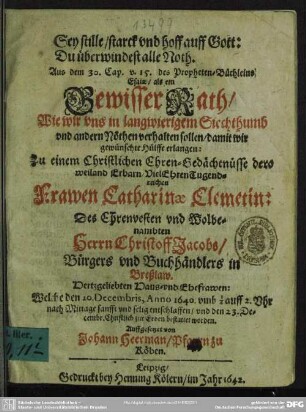 Sey stille/ starck vnd hoff auff Gott:
Du überwindest alle Noth.
Aus dem 30. Cap. v. 15. des Propheten-Büchleins
Esaiæ/ als ein
Gewisser Rath/
Wie wir vns in langwierigem Siechthumb
vnd andern Nöthen verhalten sollen/ damit wir
gewünschte Hülffe erlangen:
Zu einem Christlichen Ehren-Gedächtnüsse dero
weiland Erbarn Viel EhrenTugend-
reichen
Frawen Catharinæ Clemetin:
Des Ehrenvesten vnd Wolbe-
nambten
Herrn Christoff Jacobs/
Bürgers vnd Buchhändlers in
Breßlaw.
Hertzgeliebten Haus- vnd Ehefrawen:
Welche den 20. Decembris, Anno 1640. vmb auff 2. Vhr
nach Mittage sanfft vnd selig entschlaffen/ vnd den 23. De-
cembr. Christlich zur Erden bestattet worden.
Auffgesetzt von
Johann Heerman/ Pfarrn zu
Köben.
Leipzig/
Gedruckt bey Henning Kölern/ im Jahr 1642.